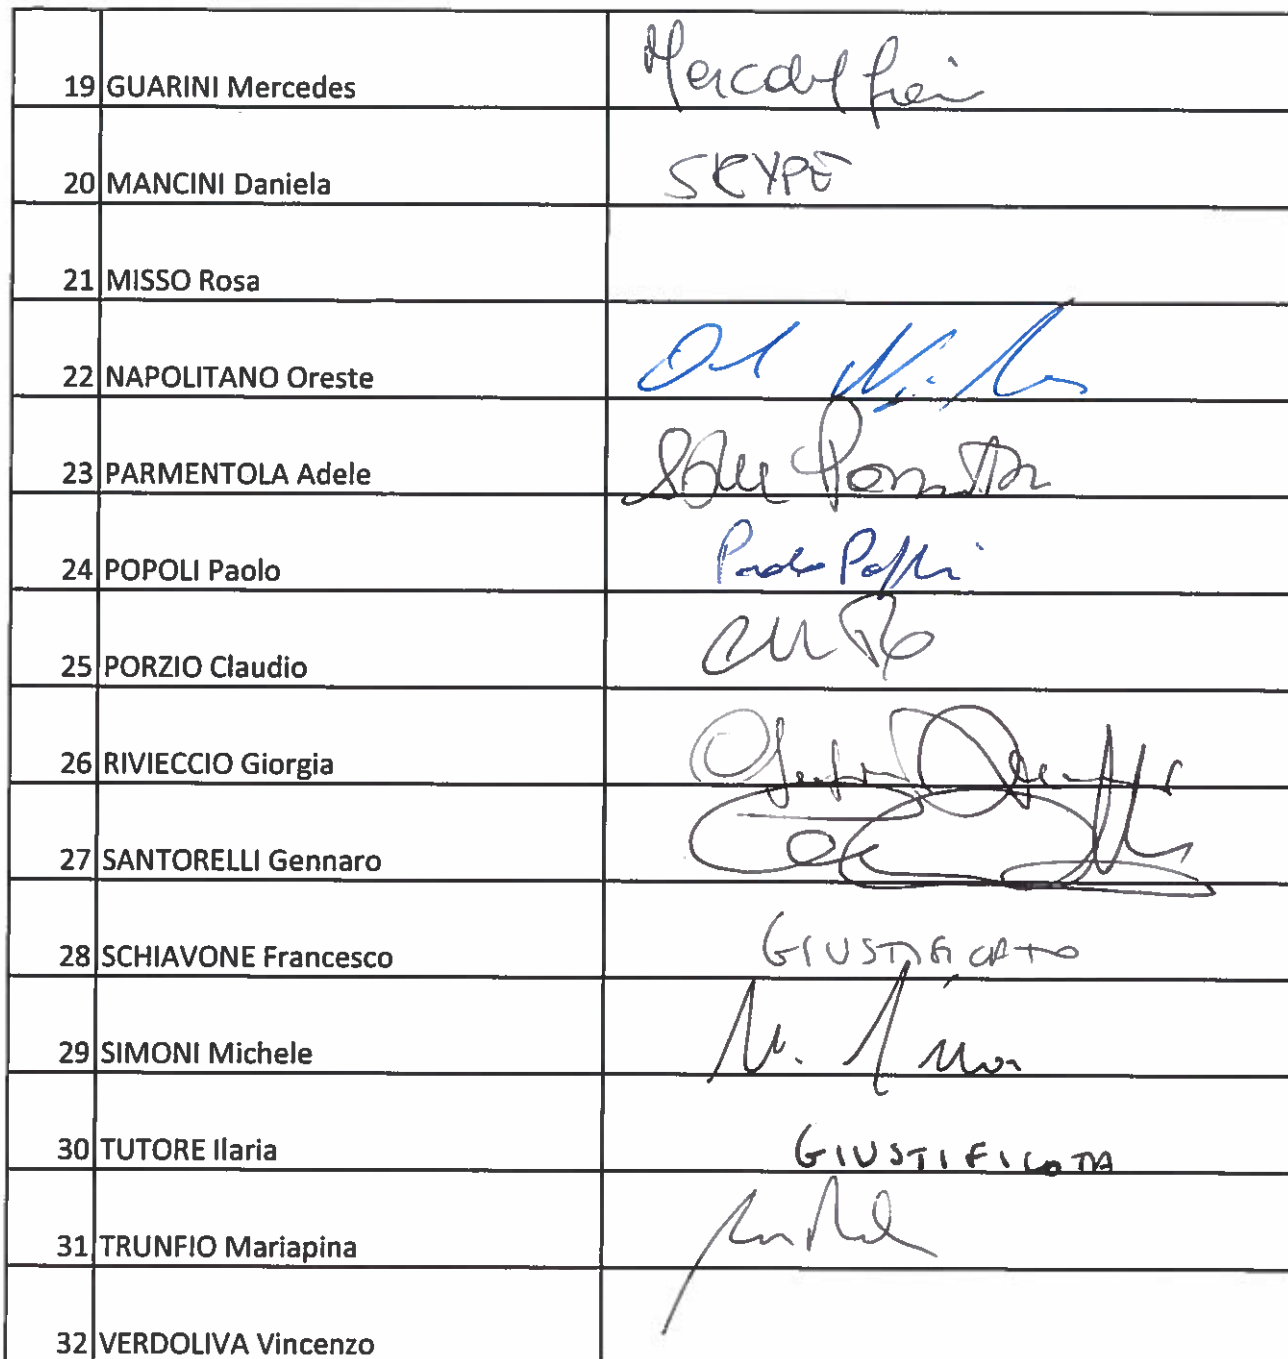 19 GUARINI Mercedes
20 MANCINI Daniela SKYPE
21 MISSO Rosa
22 NAPOLITANO Oreste
23 PARMENTOLA Adele
24 POPOLI Paolo
25 PORZIO Claudio
26 RIVIECCIO Giorgia
27 SANTORELLI Gennaro
28 SCHIAVONE Francesco GIUSTIFICATO
29 SIMONI Michele
30 TUTORE Ilaria GIUSTIFICATA
31 TRUNFIO Mariapina
32 VERDOLIVA Vincenzo